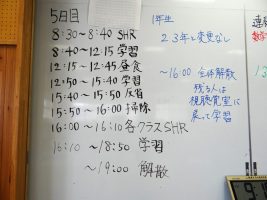 5日目
8:30~8:40 SHR
8:40~12:15 学習
12:15~12:45 昼食
12:50~15:40 学習
15:40~15:50 反省
15:50~16:00 掃除
16:00 ~16:10 各クラスSHR
16:10 ~18:50 学習
~19:00 解散
1年生
2 3年と変更なし
~16:00 全体解散
残る人は
視聴覚室に
戻って学習
連絡
数学